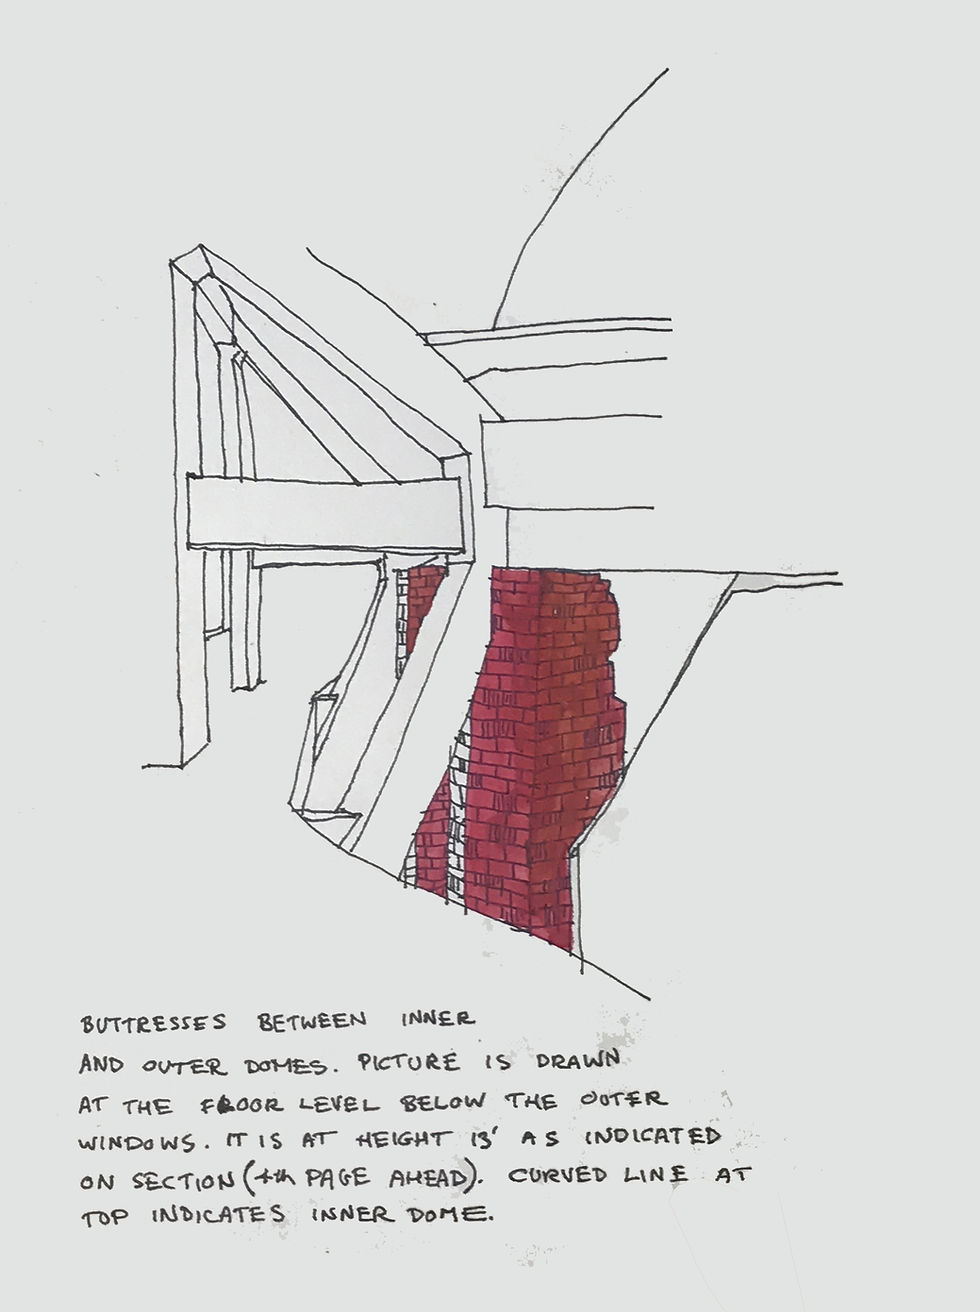 BUTTRESSES BETWEEN INNER
AND OUTER DOMES. PICTURE IS DRAWN
AT THE FLOOR LEVEL BELOW THE OUTER
WINDOWS. IT IS AT HEIGHT 13' AS INDICATED
ON SECTION (4th PAGE AHEAD). CURVED LINE AT
TOP INDICATES INNER DOME.